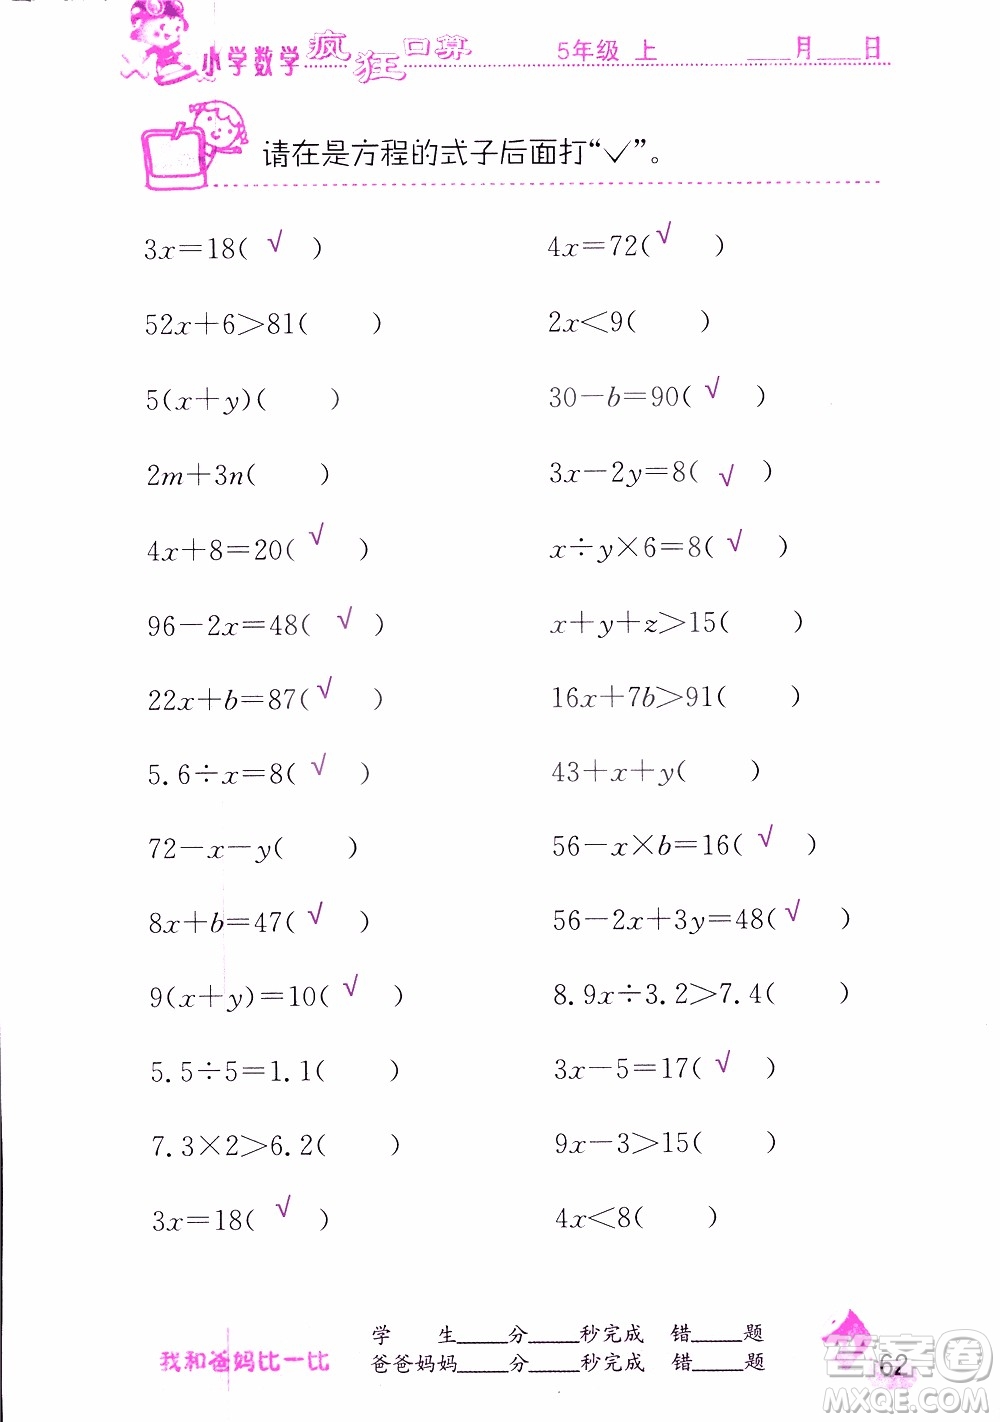 小学数学疯狂口算 5年级 上 ___月___日
请在是方程的式子后面打“✓”。
3x=18( √ ) 4x=72( √ )
52x+6>81( ) 2x<9( )
5(x+y)( ) 30-b=90( √ )
2m+3n( ) 3x-2y=8( √ )
4x+8=20( √ ) x÷y×6=8( √ )
96-2x=48( √ ) x+y+z>15( )
22x+b=87( √ ) 16x+7b>91( )
5.6÷x=8( √ ) 43+x+y( )
72-x-y( ) 56-x×b=16( √ )
8x+b=47( √ ) 56-2x+3y=48( √ )
9(x+y)=10( √ ) 8.9x÷3.2>7.4( )
5.5÷5=1.1( ) 3x-5=17( √ )
7.3×2>6.2( ) 9x-3>15( )
3x=18( √ ) 4x<8( )
学 生____分____秒完成 错____题
我和爸妈比一比 爸爸妈妈____分____秒完成 错____题
62
答案圈
MXQE.COM